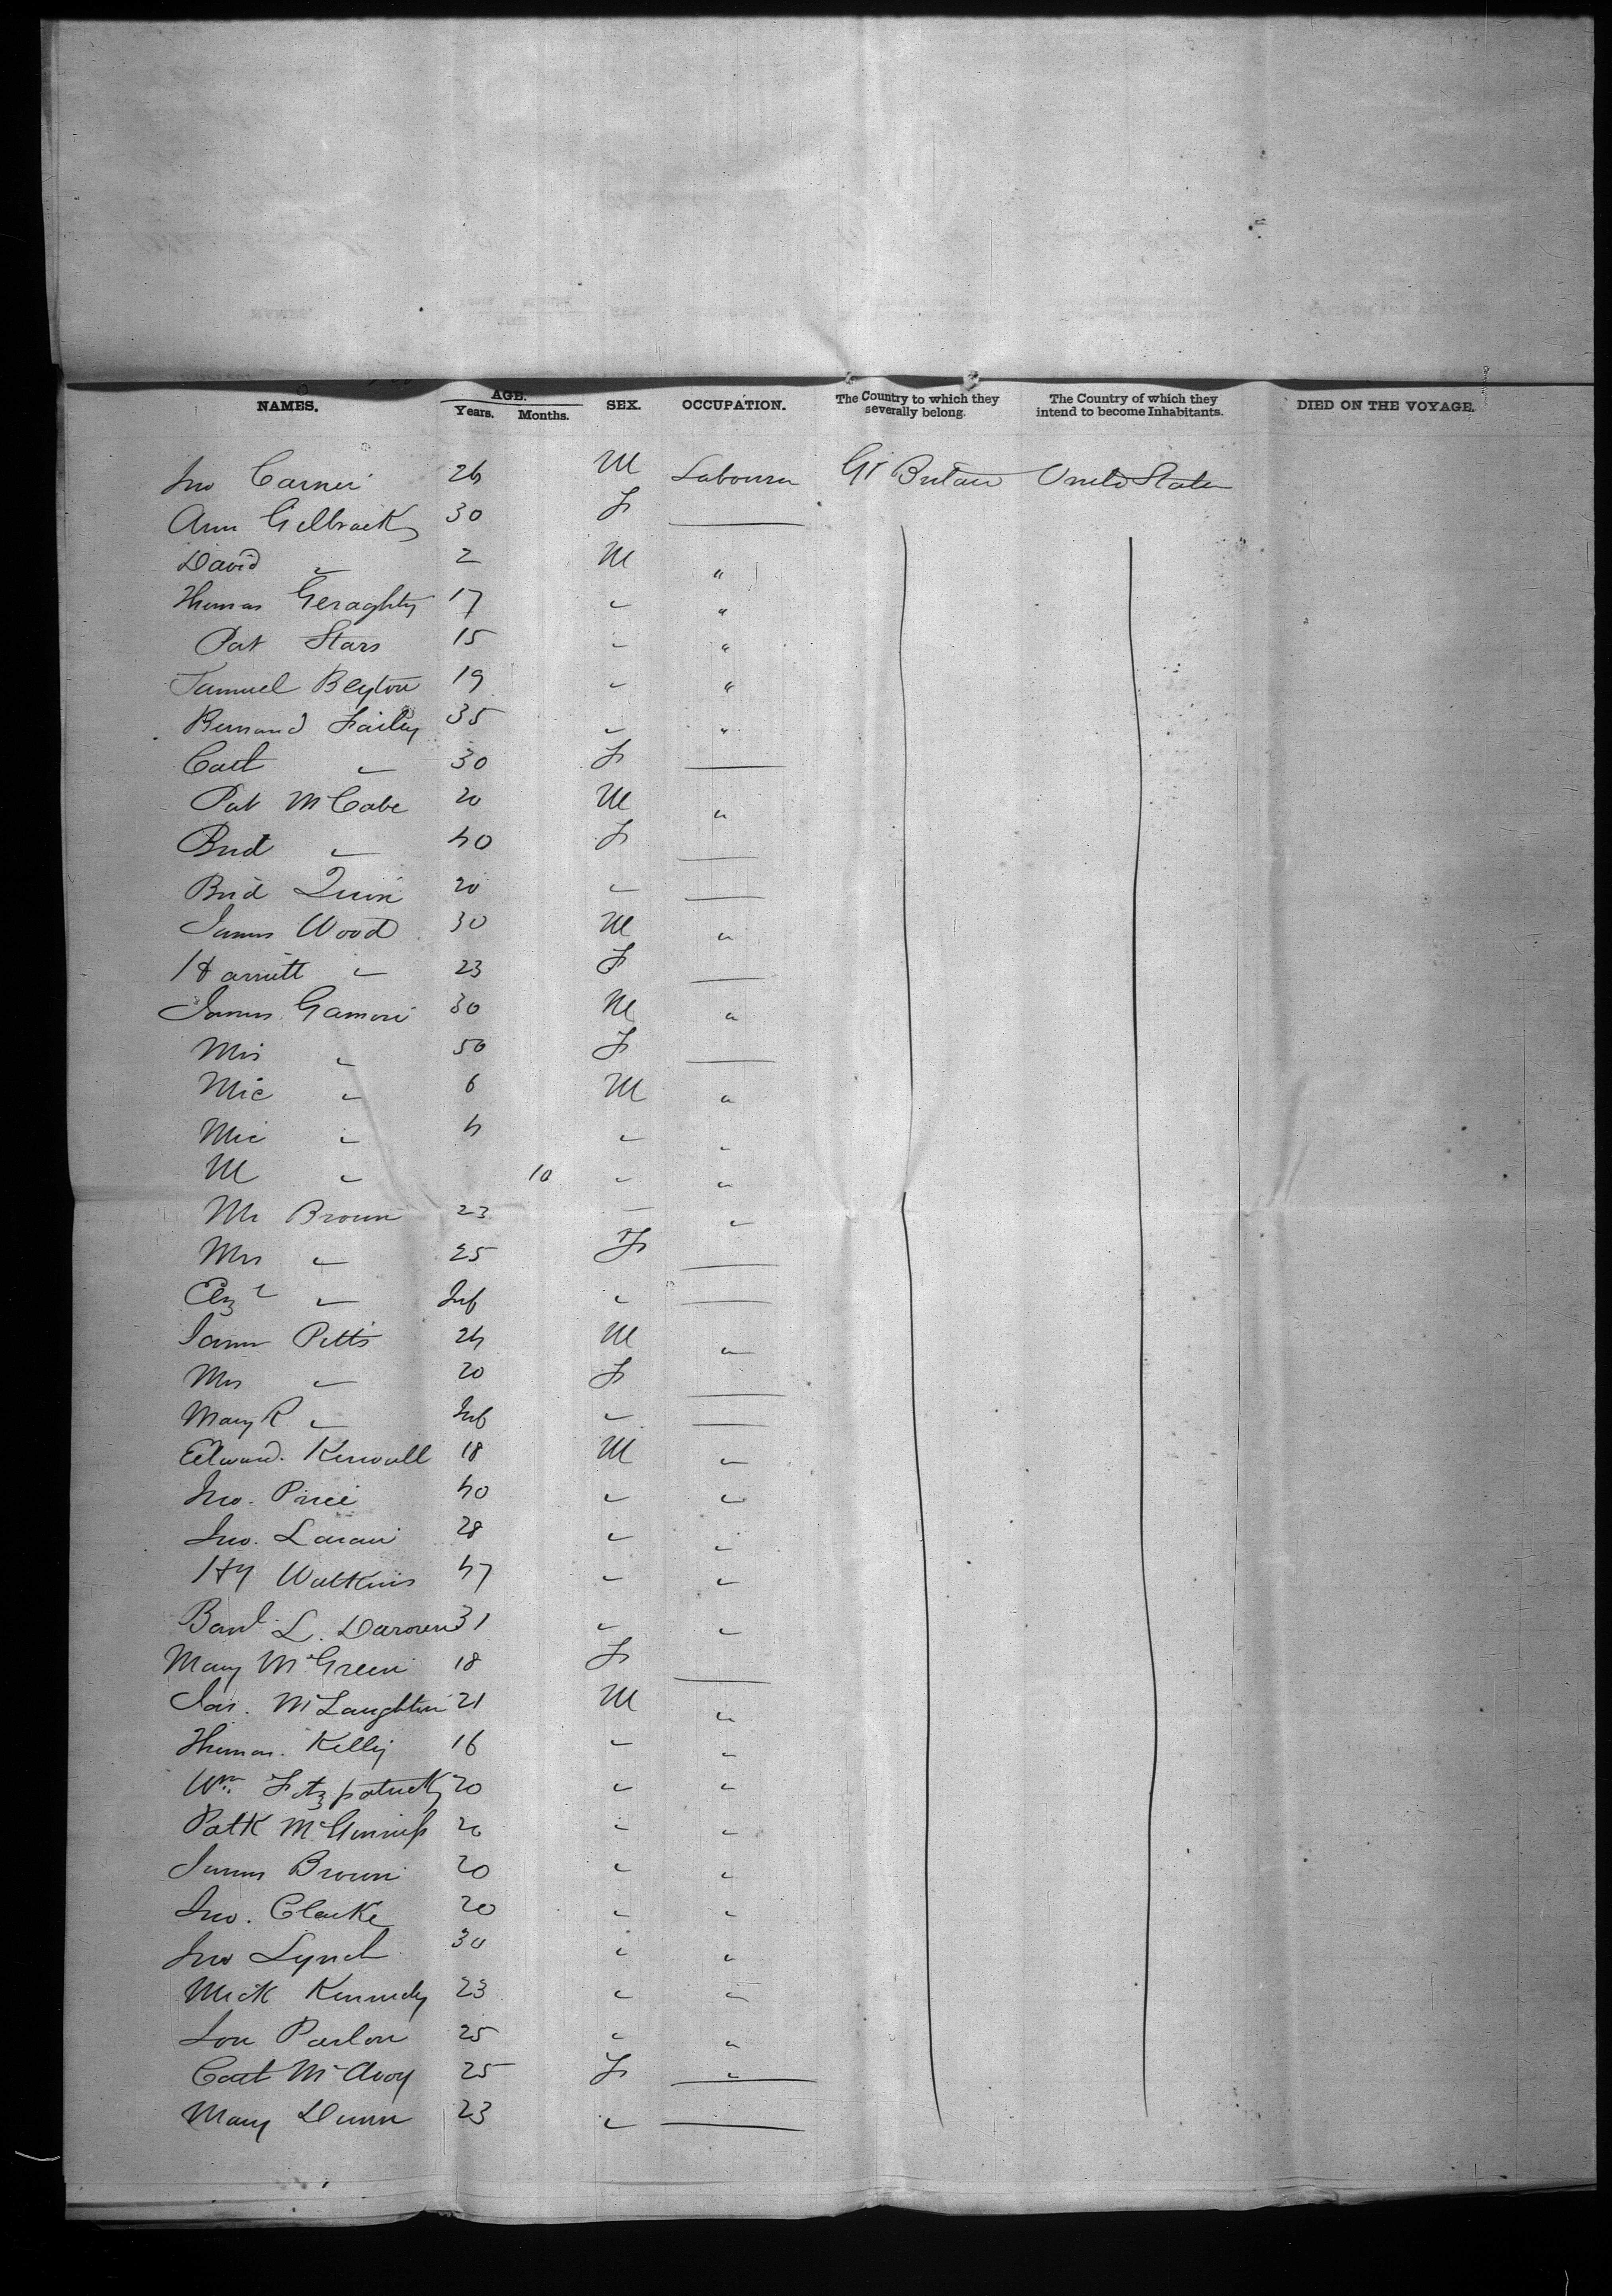 NAMES. AGE. Years. Months. SEX. OCCUPATION. The Country to which they severally belong. The Country of which they intend to become Inhabitants. DIED ON THE VOYAGE.
Jno 24 M Labourer Gt Britain United States
Ann Gilbrack 30 F
David " 2 M "
Thomas Geraghty 17 " "
Pat Stars 15 " "
Samuel Beyton 19 " "
Bernard Failey 35 " "
Cath " 30 F
Pat McCabe 20 M "
Brid " 40 F
Brid Quin 20 "
James Wood 30 M "
Harriett " 23 F
James Gamon 30 M "
Mrs " 50 F
Mic " 6 M "
Mic " 4 " "
M " 10 " "
Mr Brown 23 " "
Mrs " 25 F
Elizth " Inf "
James Pitts 24 M "
Mrs " 20 F
Mary R " Inf "
Edward 18 M "
Jno. Price 40 " "
Jno. 28 " "
Hy Watkins 47 " "
L. 31 " "
Mary McGreen 18 F
Jas. McLaughlin 21 M "
Thomas Kelly 16 " "
Wm. Fitzpatrick 20 " "
Patk McGinniss 20 " "
James Brown 20 " "
Jno. Clarke 20 " "
Jno Lynch 30 " "
Mick Kennedy 23 " "
Parlon 25 " "
Cath McAvoy 25 F "
Mary Dunn 23 "